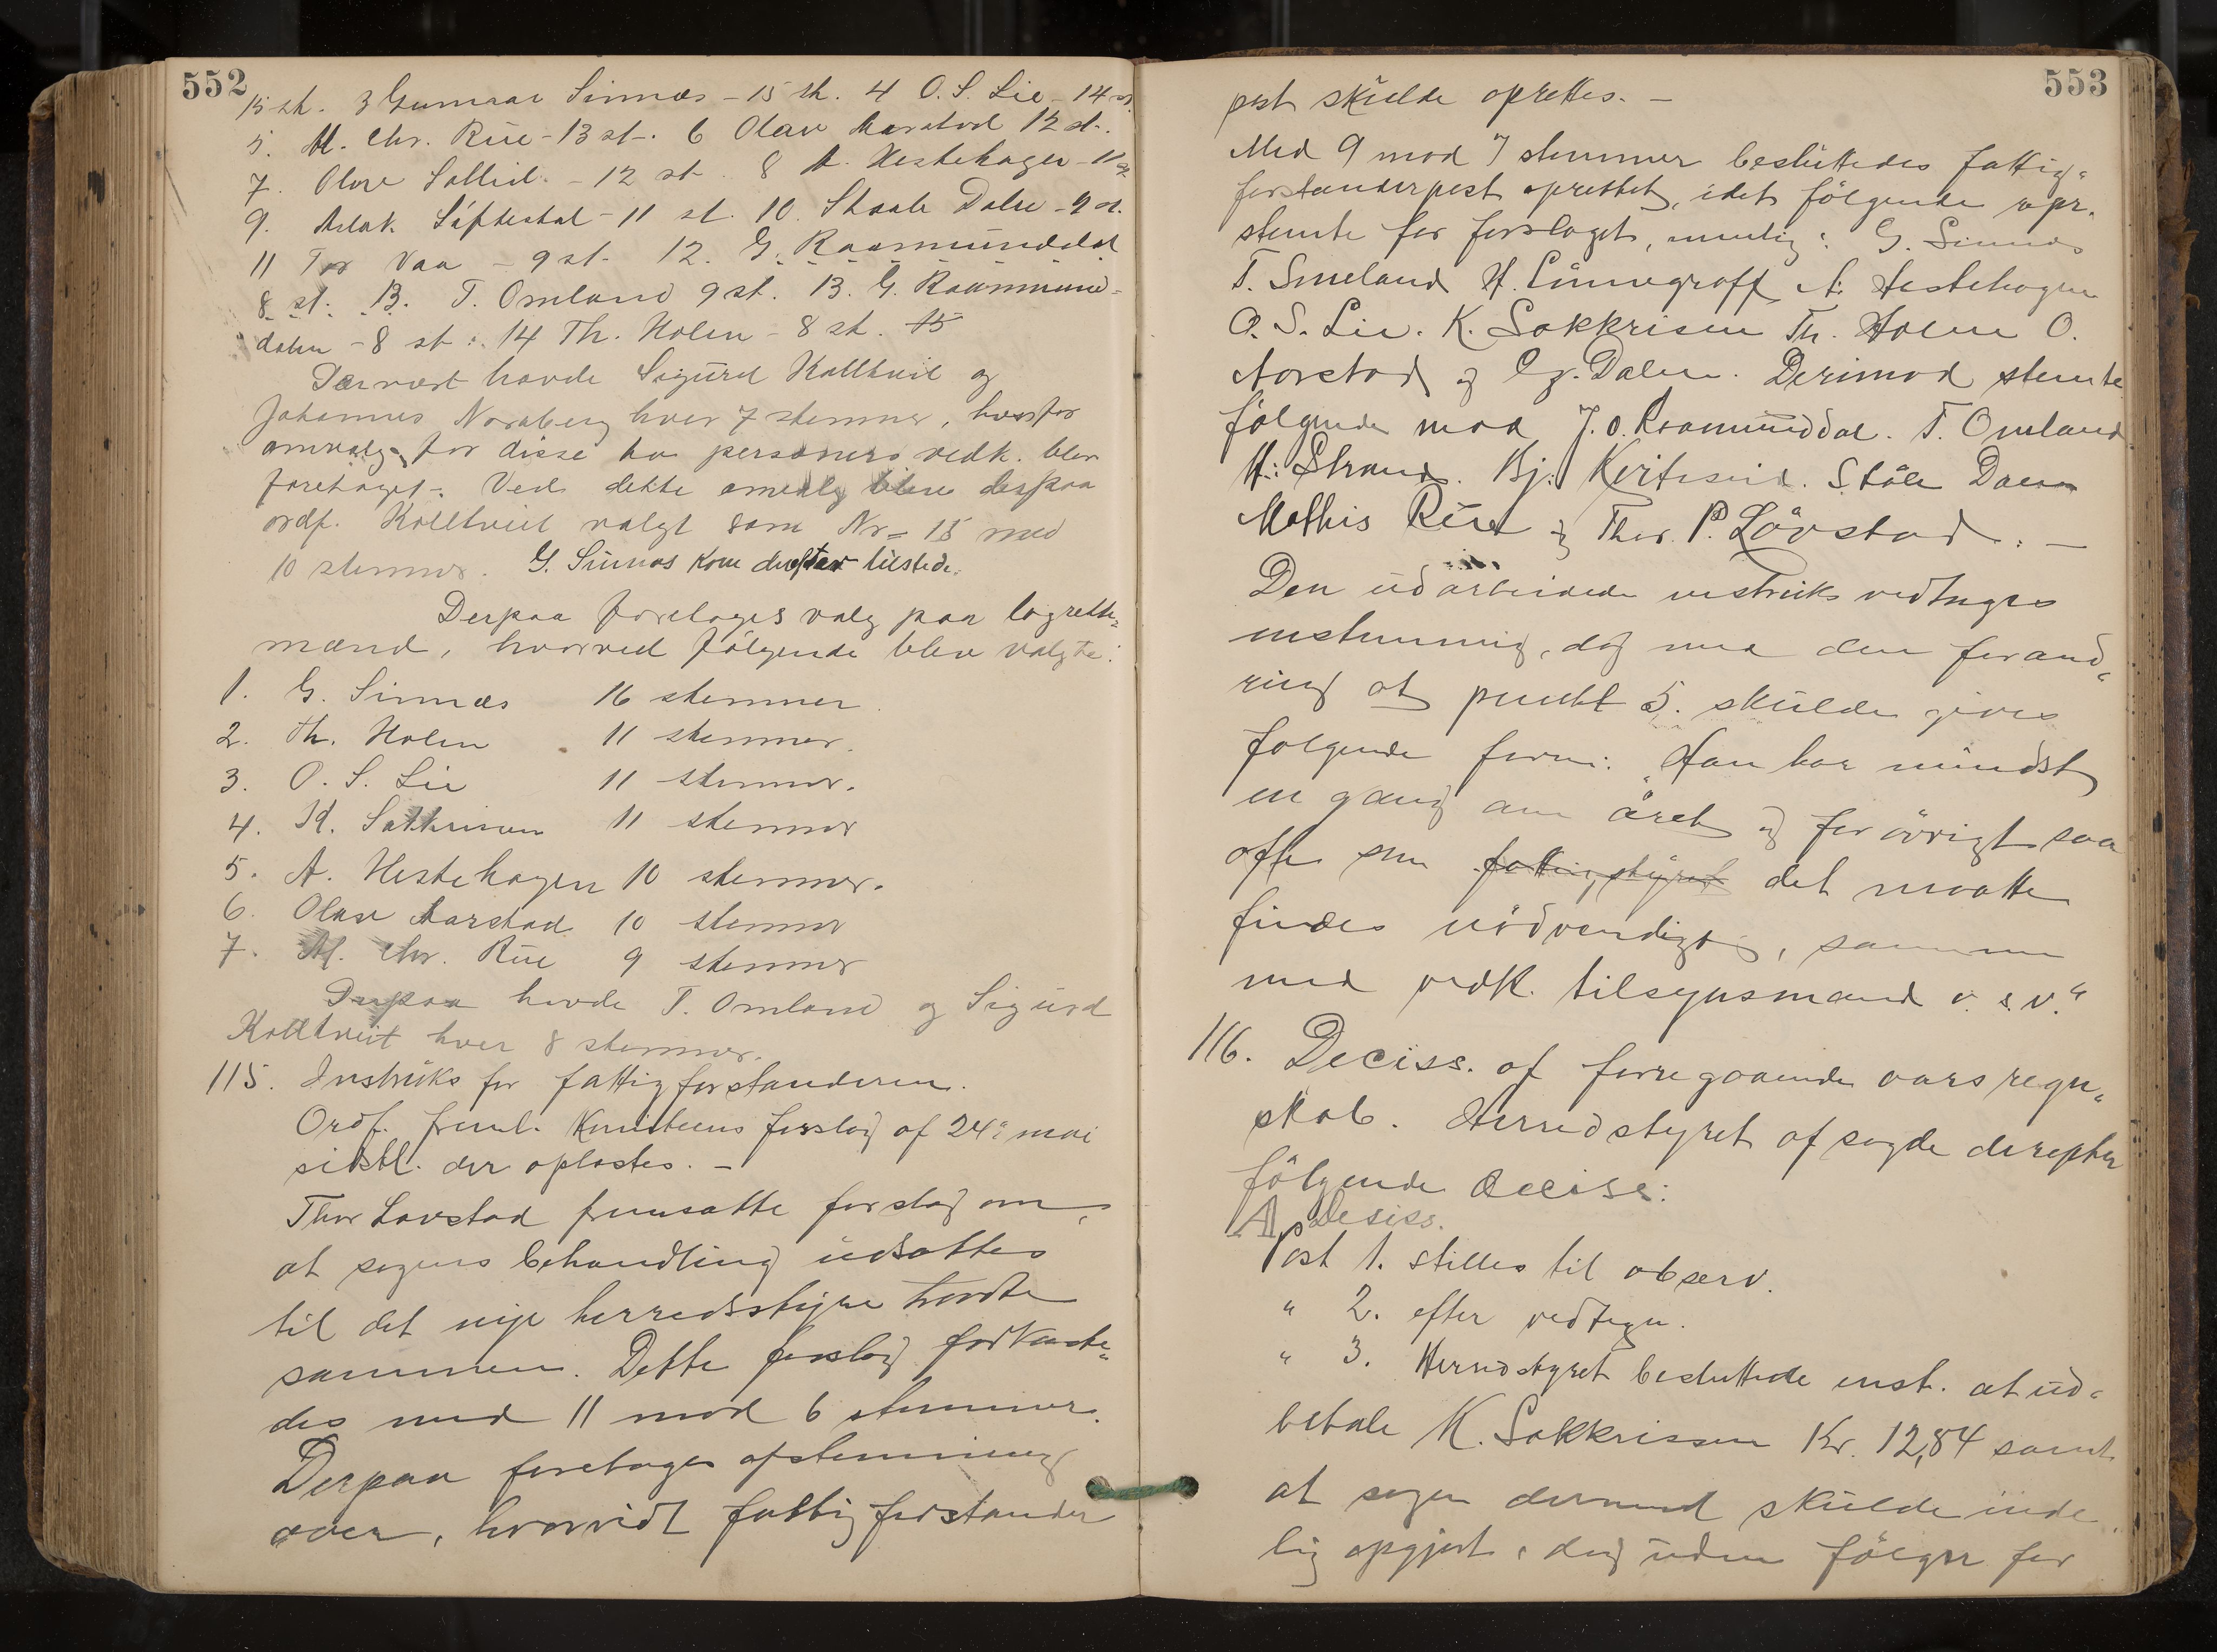 552
15 st. 3 Gunnar Sinnæs - 15 st. 4 O. S. Lie - 14 st.
5. M. Chr. Rüe - 13 st. 6 Olav Aarstad 12 st.
7. Olav Sollid - 12 st. 8 A. Hestehagen - 11 st.
9. Aslak Siftestal - 11 st. 10. Staale Dalen - 9 st.
11 Tor Vaa - 9 st. 12. G. Raamünddal
8 st. 13. T. Omland 9 st. 13. G. Raamünd-
dalen - 8 st. 14 Th. Holen - 8 st. 15
Dernæst havde Sigürd Kolltveit og
Johannes Nordberg hver 7 stemmer, hvorfor
omvalg for disse to personers vedk. blev
foretaget. Ved dette omvalg blev derpaa
ordf. Kolltveit valgt som Nr. 15 med
10 stemmer. G. Sinnæs kom derefter tilstede.
Derpaa foretoges valg paa lagrette„
mænd, hvorved fölgende blev valgte:
1. G. Sinnæs 16 stemmer.
2. Th. Holen 11 stemmer.
3. O. S. Lie 11 stemmer.
4. K. Sakkrisen 11 stemmer
5. A. Hestehagen 10 stemmer.
6. Olav Aarstad 10 stemmer
7. M. Chr. Rüe 9 stemmer
Derpaa havde T. Omland og Sigürd
Kolltveit hver 8 stemmer.
115. Instrüks for fattigforstanderen.
Ordf. freml. Komiteens forslag af 24de mai
sidstl. der oplæstes. -
Thor Lövstad fremsatte forslag om,
at sagens behandling üdsættes
til det nye herredsstyre trædte
sammen. Dette forslag forkaste„
des med 11 mod 6 stemmer.
Derpaa foretoges afstemning
over, hvorvidt fattigforstander
553
post skülde oprettes. -
Med 9 mod 7 stemmer beslüttedes fattig„
forstanderpost oprettet, idet fölgende repr.
stemte for forslaget, nemlig: G. Sinnæs
T. Smeland H. Lünnegroff A. Hestehagen
O. S. Lie. K. Sakkrisen Th. Holen O.
Aarstad og Gg. Dalen. Derimod stemte
fölgende mod J. O. Raamünddal. T. Omland
H. Strand. Bj. Kvitsünd. Ståle Dalen
Mathis Rüe og Thor P. Lövstad. -
Den üdarbeidede instrüks vedtages
enstemmig, dog med den forand„
ring at punkt 5. skülde gives
følgende form: „Han har mindst
en gang om året og forövrigt saa
ofte som fattigstyret det maatte
findes nödvendigt, sammen
med vedk. tilsynsmand o. s. v."
116. Deciss. af forregaaende aars regn„
skab. Herredstyret afsagde derefter
fölgende deciss:
A, Desiss.
Post 1. stilles til observ.
" 2. efter vedtegn.
" 3. Herredstyret besluttede enst. at üd„
betale K. Sakkrissen Kr. 12,84 samt
at sagen dermed skülde ende„
lig opgjort, dog üden fölger for